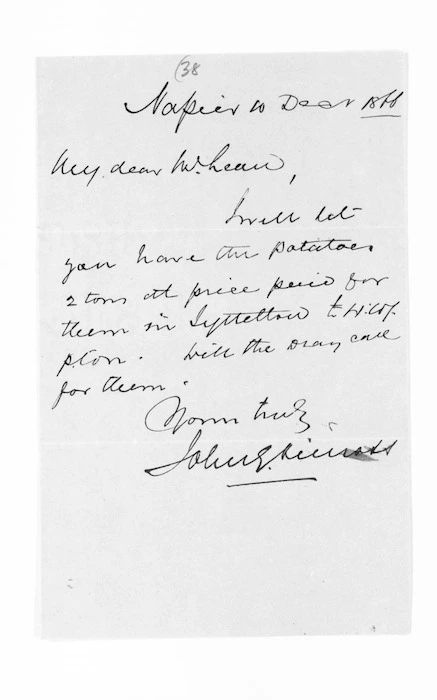 (38
Napier 10 Decr 1866
My dear McLean,
I will let
you have the potatoes
2 tons at price paid for
them in Lyttelton
p ton. Will the dray call
for them.
Yours truly,
John G. Kinross